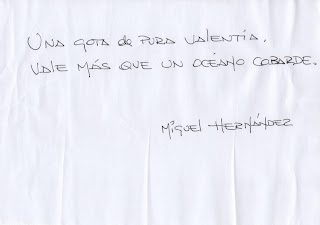 UNA GOTA de PURA VALENTÍA.
VALE MÁS QUE UN OCÉANO COBARDE.
MIGUEL HERNÁNDEZ